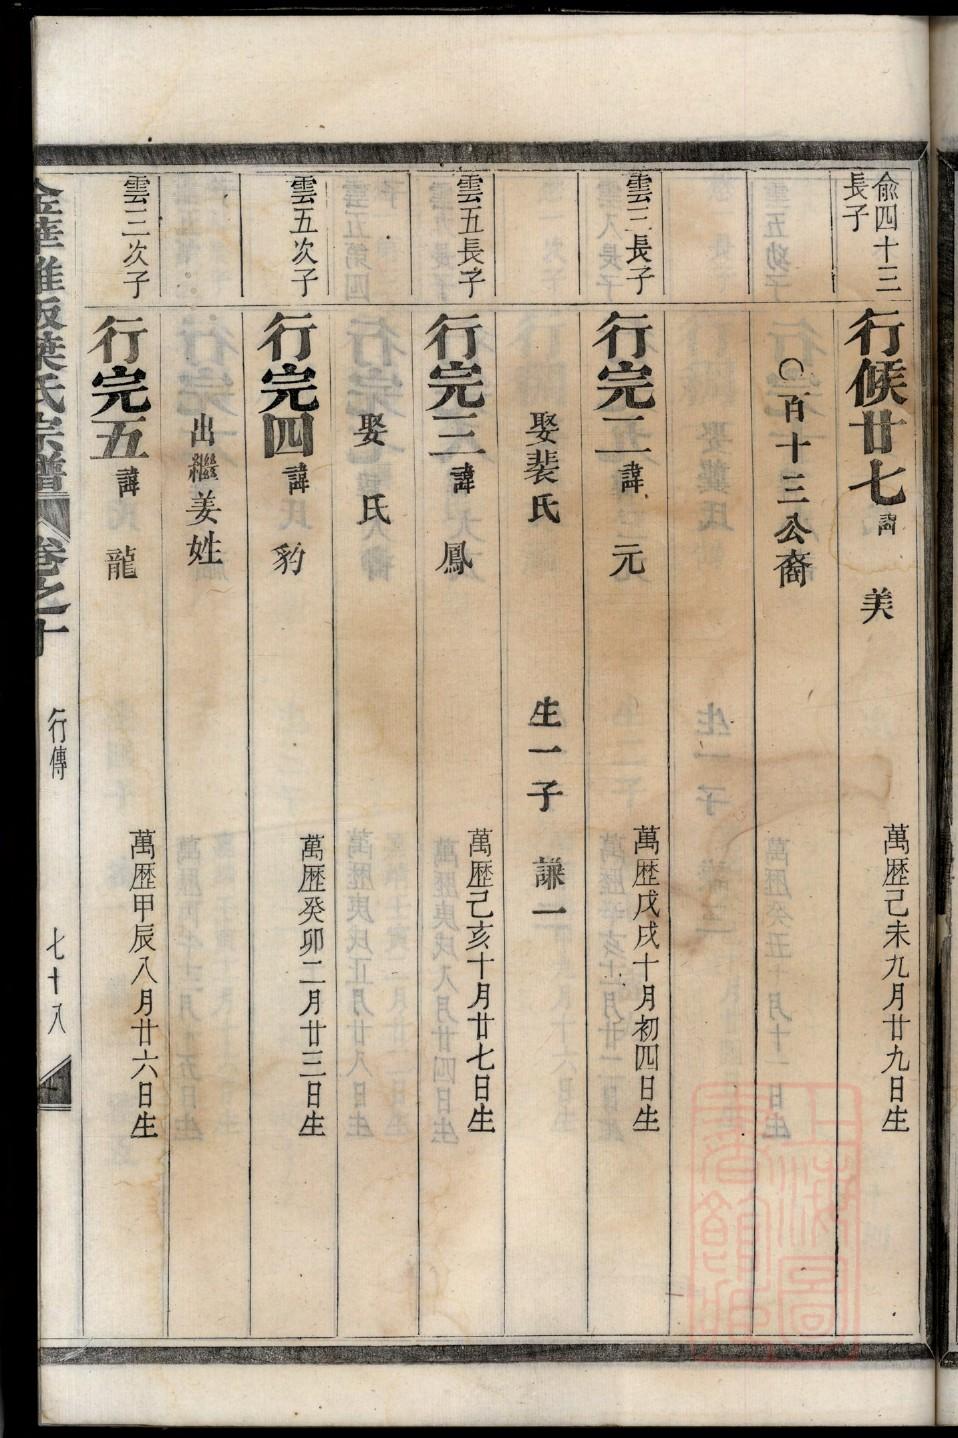 俞四十三
長子
行候廿七諱 美 萬歷己未九月廿九日生
○百十三公裔
雲三長子
行完二諱 元 萬歷戊戌十月初四日生
娶裴氏 生一子 謙一
雲五長子
行完三諱 鳳 萬歷己亥十月廿七日生
娶 氏
雲五次子
行完四諱 豹 萬歷癸卯二月廿三日生
出繼姜姓
雲三次子
行完五諱 龍 萬歷甲辰八月廿六日生
葉氏宗譜 卷之十 行傳 七十八